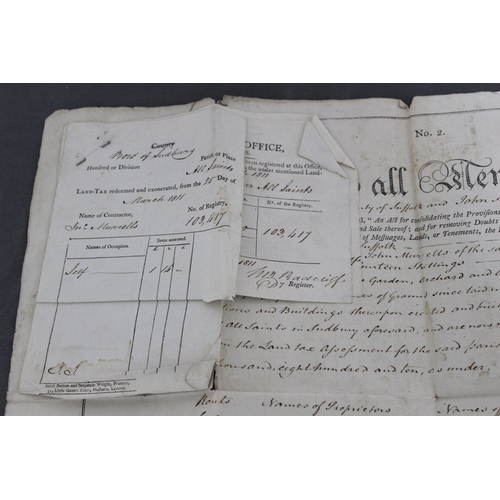 County
Boro' of Sudbury
Hundred or Division
Parish or Place
All Saints
LAND-TAX redeemed and exonerated, from the 25 Day of
March 1811
Name of Contractor,
No. of Registry,
Jno. Murrells
103,417
Names of Occupiers.
Sums assessed.
£. s. d.
Self
1 14 -
Jacob Sexton and Benjamin Wright, Printers,
Little Queen Street, Holborn, London.
OFFICE,
been registered at this Office,
the under mentioned Land-
1811
All Saints
No. of the Registry.
103,417
1811
Register.
No. 2.
all Men
of Suffolk and John
"An Act for consolidating the Provisions
and Sale thereof; and for removing Doubts
of Messuages, Lands, or Tenements, the
Suffolk
John Murrells of the
fourteen Shillings
Garden, Orchard and
of Ground since laid
and Buildings thereupon erected and
All Saints in Sudbury aforesaid, and are now
in the Land tax Assessment for the said parish
thousand, eight hundred and ten, as under,
Names of Proprietors
Names of